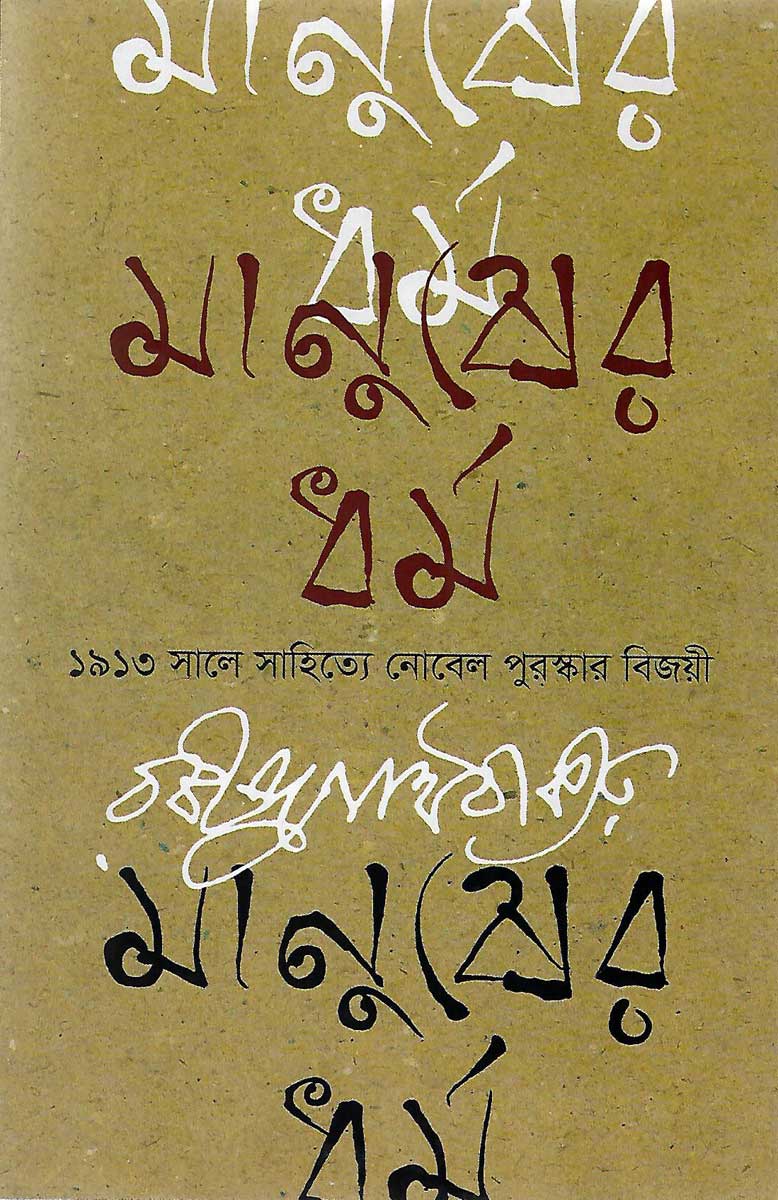 মানুষের
ধর্ম
মানুষের
ধর্ম
১৯১৩ সালে সাহিত্যে নোবেল পুরস্কার বিজয়ী
রবীন্দ্রনাথ ঠাকুর
মানুষের
ধর্ম